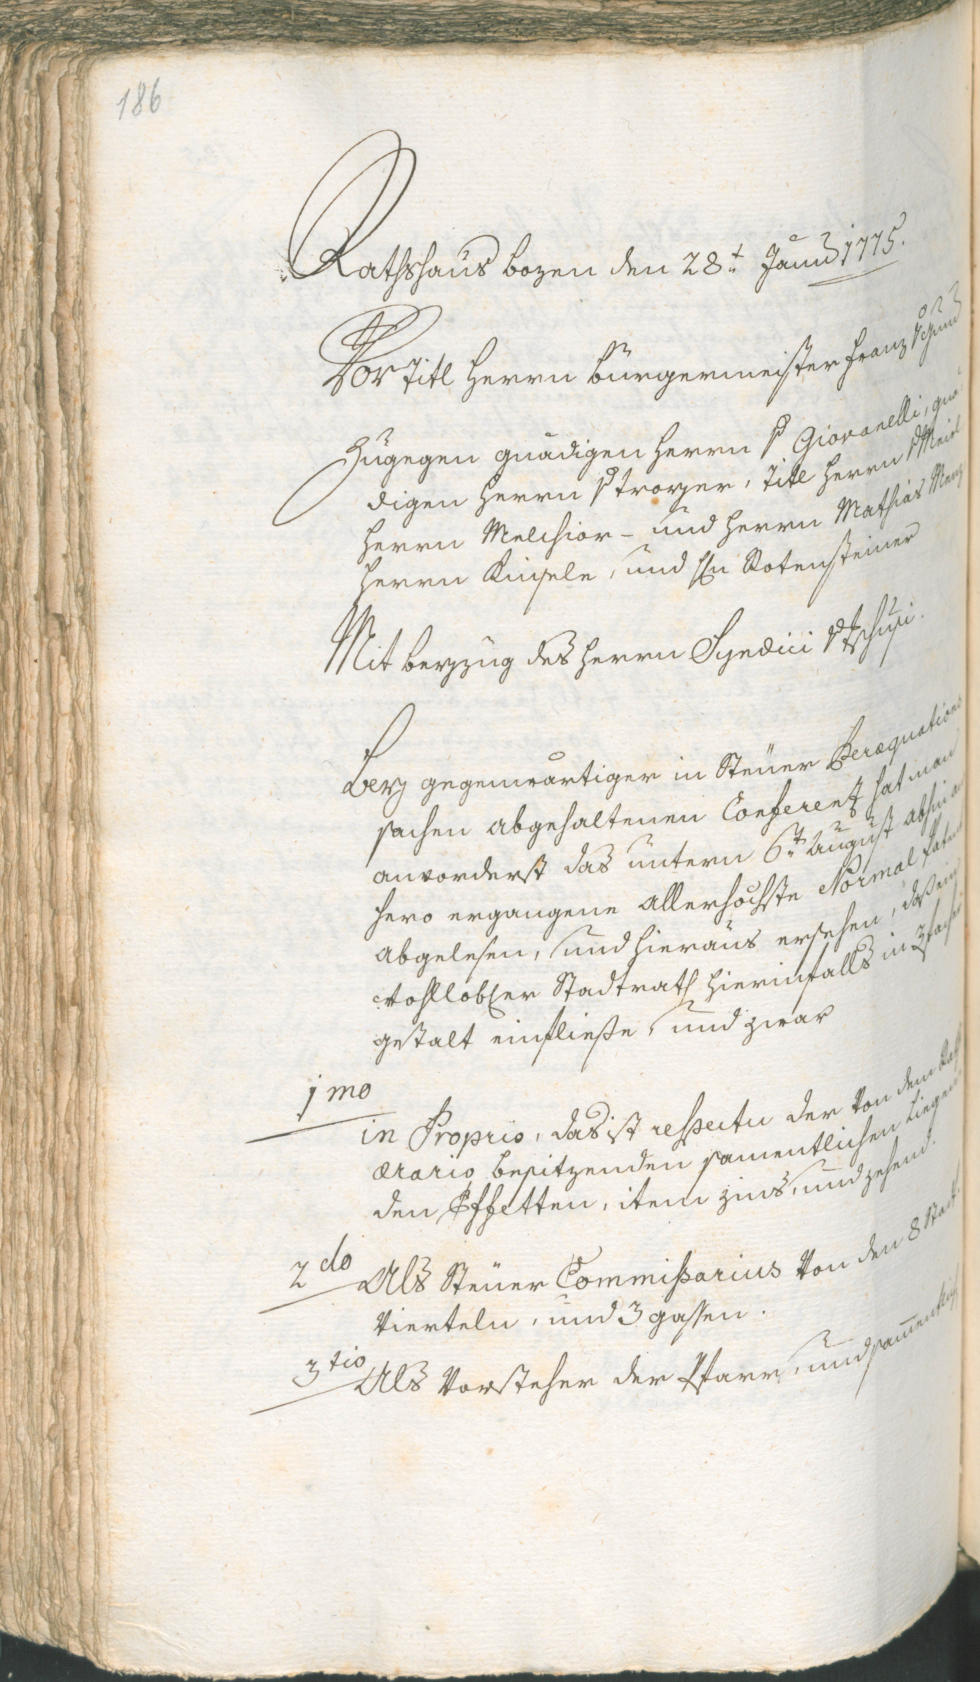 186
Rathshaus bozen den 28t Jann 1775.
Vor Titl Herrn bürgermeister Franz v
Zugegen gnädigen Herrn v Giovanelli, gnä
digen Herrn v troyer, Titl Herrn v
Herrn Melchior- und Herrn Mathias Menz
Herrn Kinsele, und Hn Rotensteiner
Mit beyzug des Herrn Syndici
Bey gegenwärtiger in Steüer Peræquations
sachen abgehaltenen Conferenz hat man
anvorderst das untern 6ten August abhin an
hero ergangene allerhöchste Normal Patent
abgelesen, und hieraus ersehen, daß ein
wohllobler Stadtrath hierinfalls in 3facher
gestalt einfließe, und zwar
1mo
in Proprio, das ist respectu der von dem
ærario besitzenden samentlichen Liegen
den Effetten, item zins, und zehend.
2do Als Steüer Commissarius von den 8 Stadt
Vierteln, und 3 gassen.
3tio Als Vorsteher der Pfarr, und samentlich